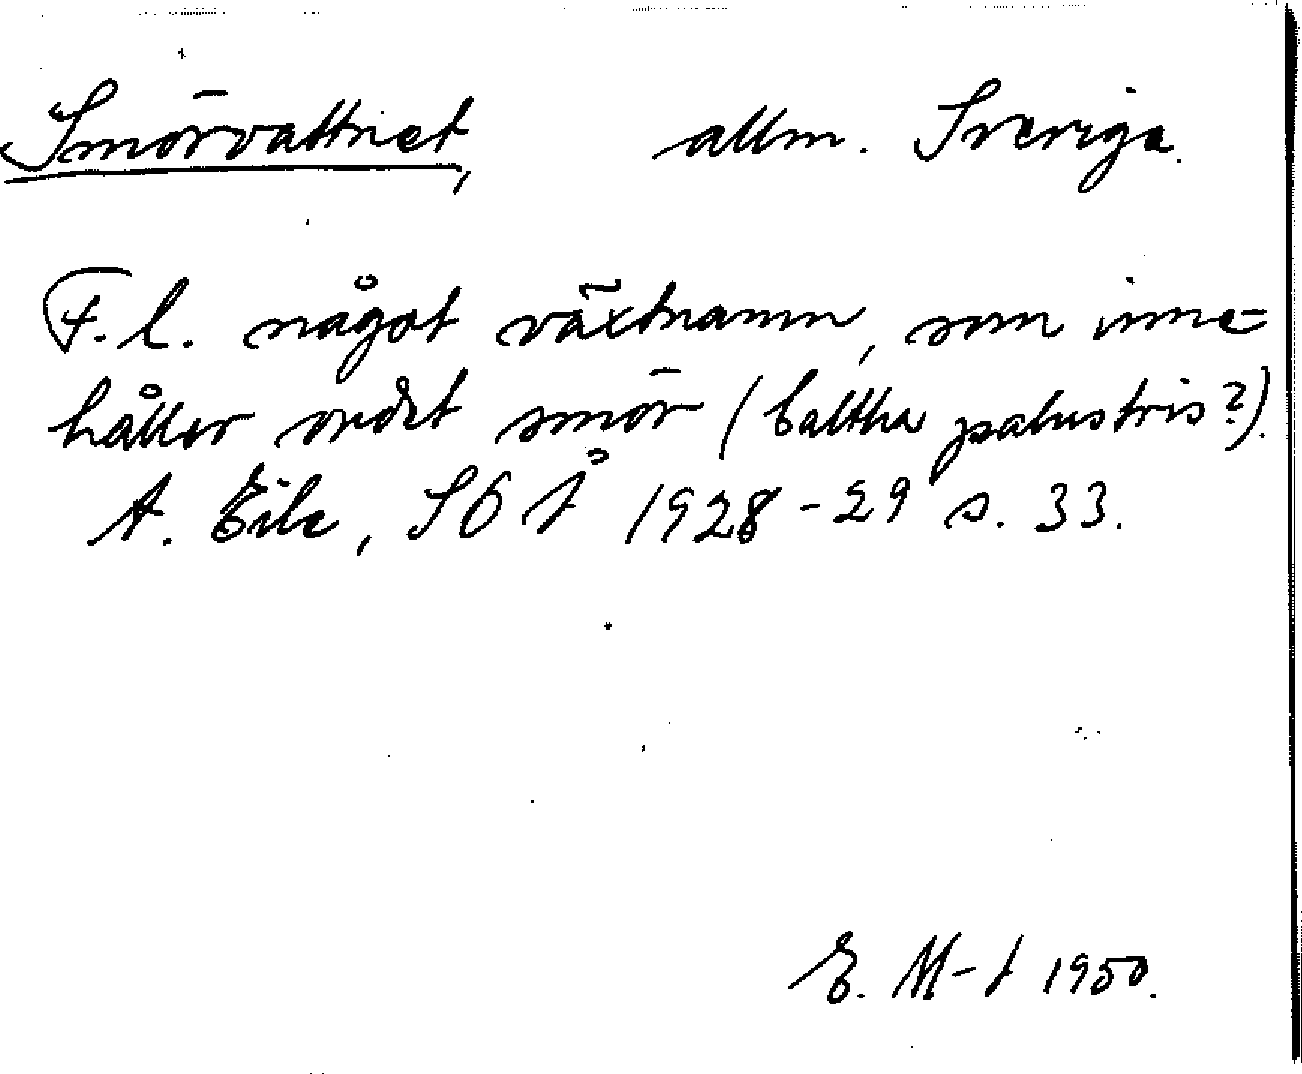 Smörvattnet, allm. Sverige.
F.l. något växtnamn, som inne-
håller ordet smör (caltha palustris?).
A. Eile, SOÅ 1928-29 s. 33.
E. M-t 1950.